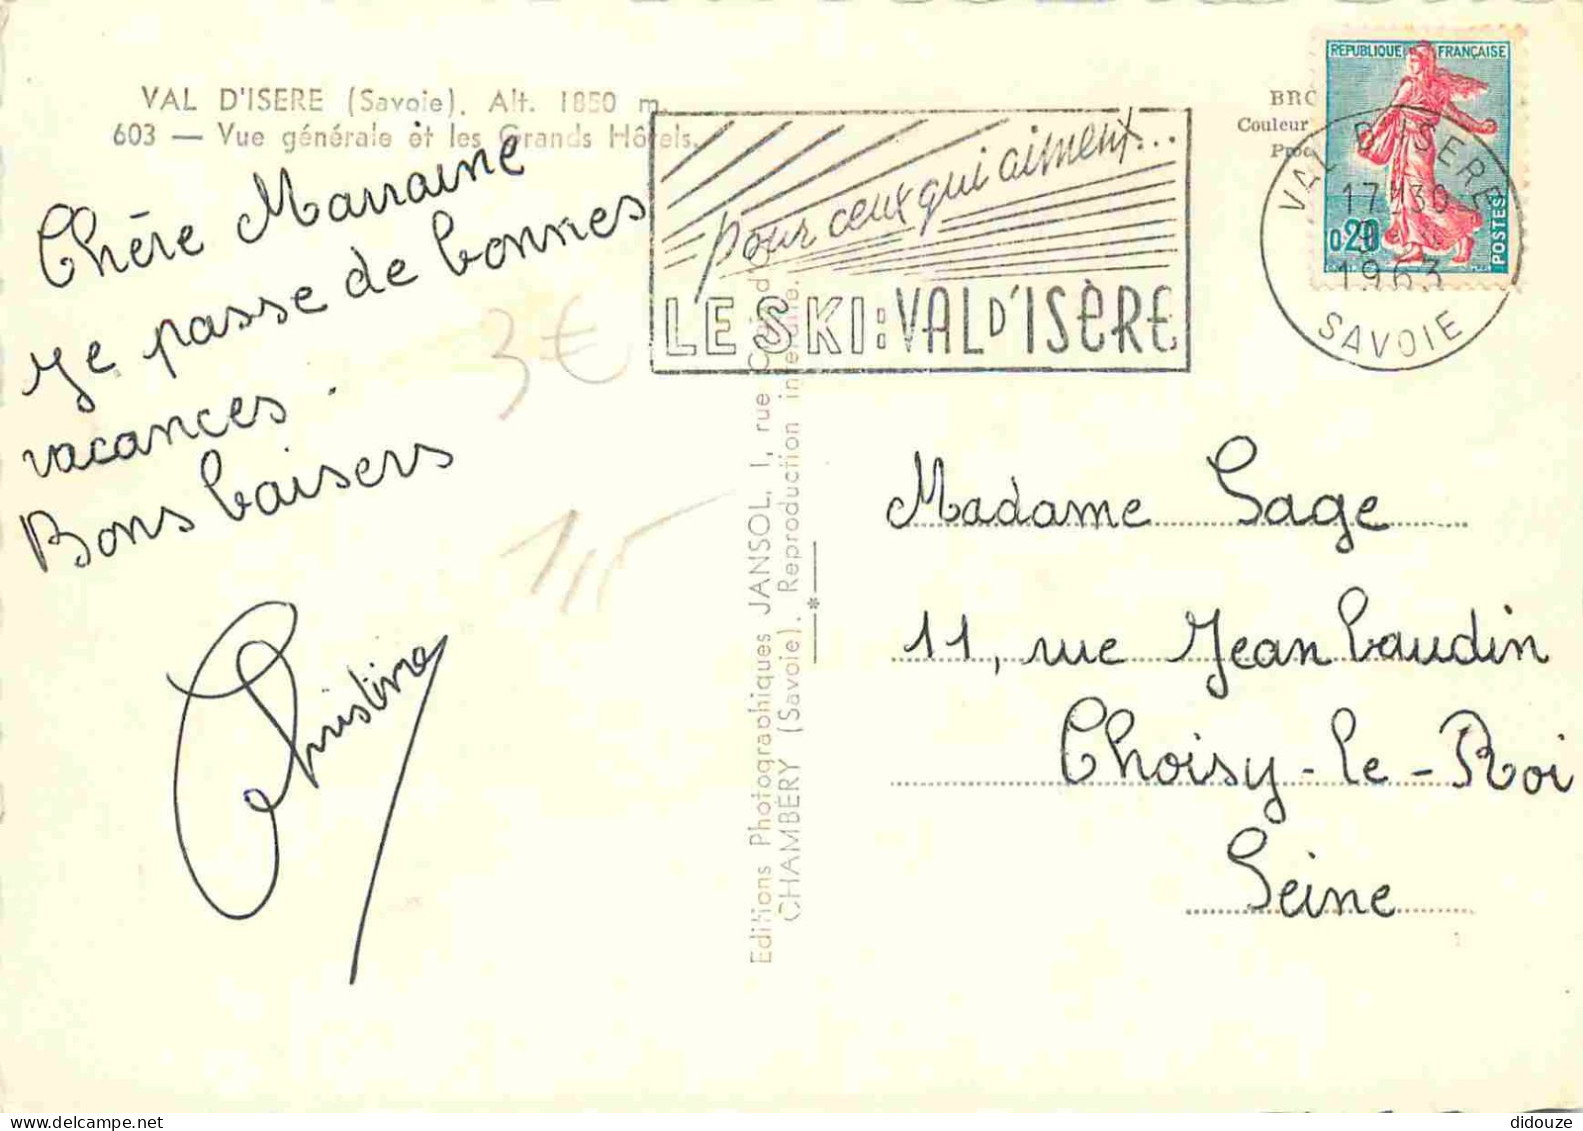 VAL D'ISERE (Savoie). Alt. 1850 m.
603 — Vue générale et les Grands Hôtels.
Chère Marraine
Je passe de bonnes
vacances.
Bons baisers
Christine
3€
pour ceux qui aiment...
LE SKI: VAL D'ISÈRE
Editions Photographiques JANSOL, 1, rue
CHAMBÉRY (Savoie). Reproduction interdite.
Couleur
REPUBLIQUE FRANÇAISE
0,20
POSTES
VAL D'ISERE
17H30
1963
SAVOIE
Madame Sage
11, rue Jean baudin
Choisy-le-Roi
Seine
didouze